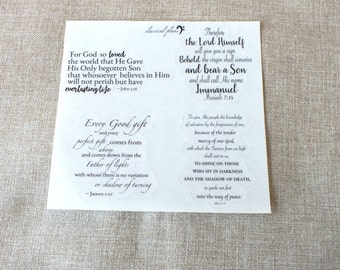 classical plans
For God so loved
the world that He Gave
His Only Begotten Son
that whosoever believes in Him
will not perish but have
everlasting life
~ John 3:16
Therefore
the Lord Himself
will give you a sign
Behold the virgin shall conceive
and bear a Son
and shall call His name
Immanuel
Isaiah 7:14
Every Good gift
and every
perfect gift comes from
above
and comes down from the
Father of lights
with whom there is no variation
or shadow of turning
~ James 1:17
To give His people the knowledge
of salvation by the forgiveness of sins,
because of the tender
mercy of our God,
with which the Sunrise from on high
shall visit us
TO SHINE ON THOSE
WHO SIT IN DARKNESS
AND THE SHADOW OF DEATH,
to guide our feet
into the way of peace.